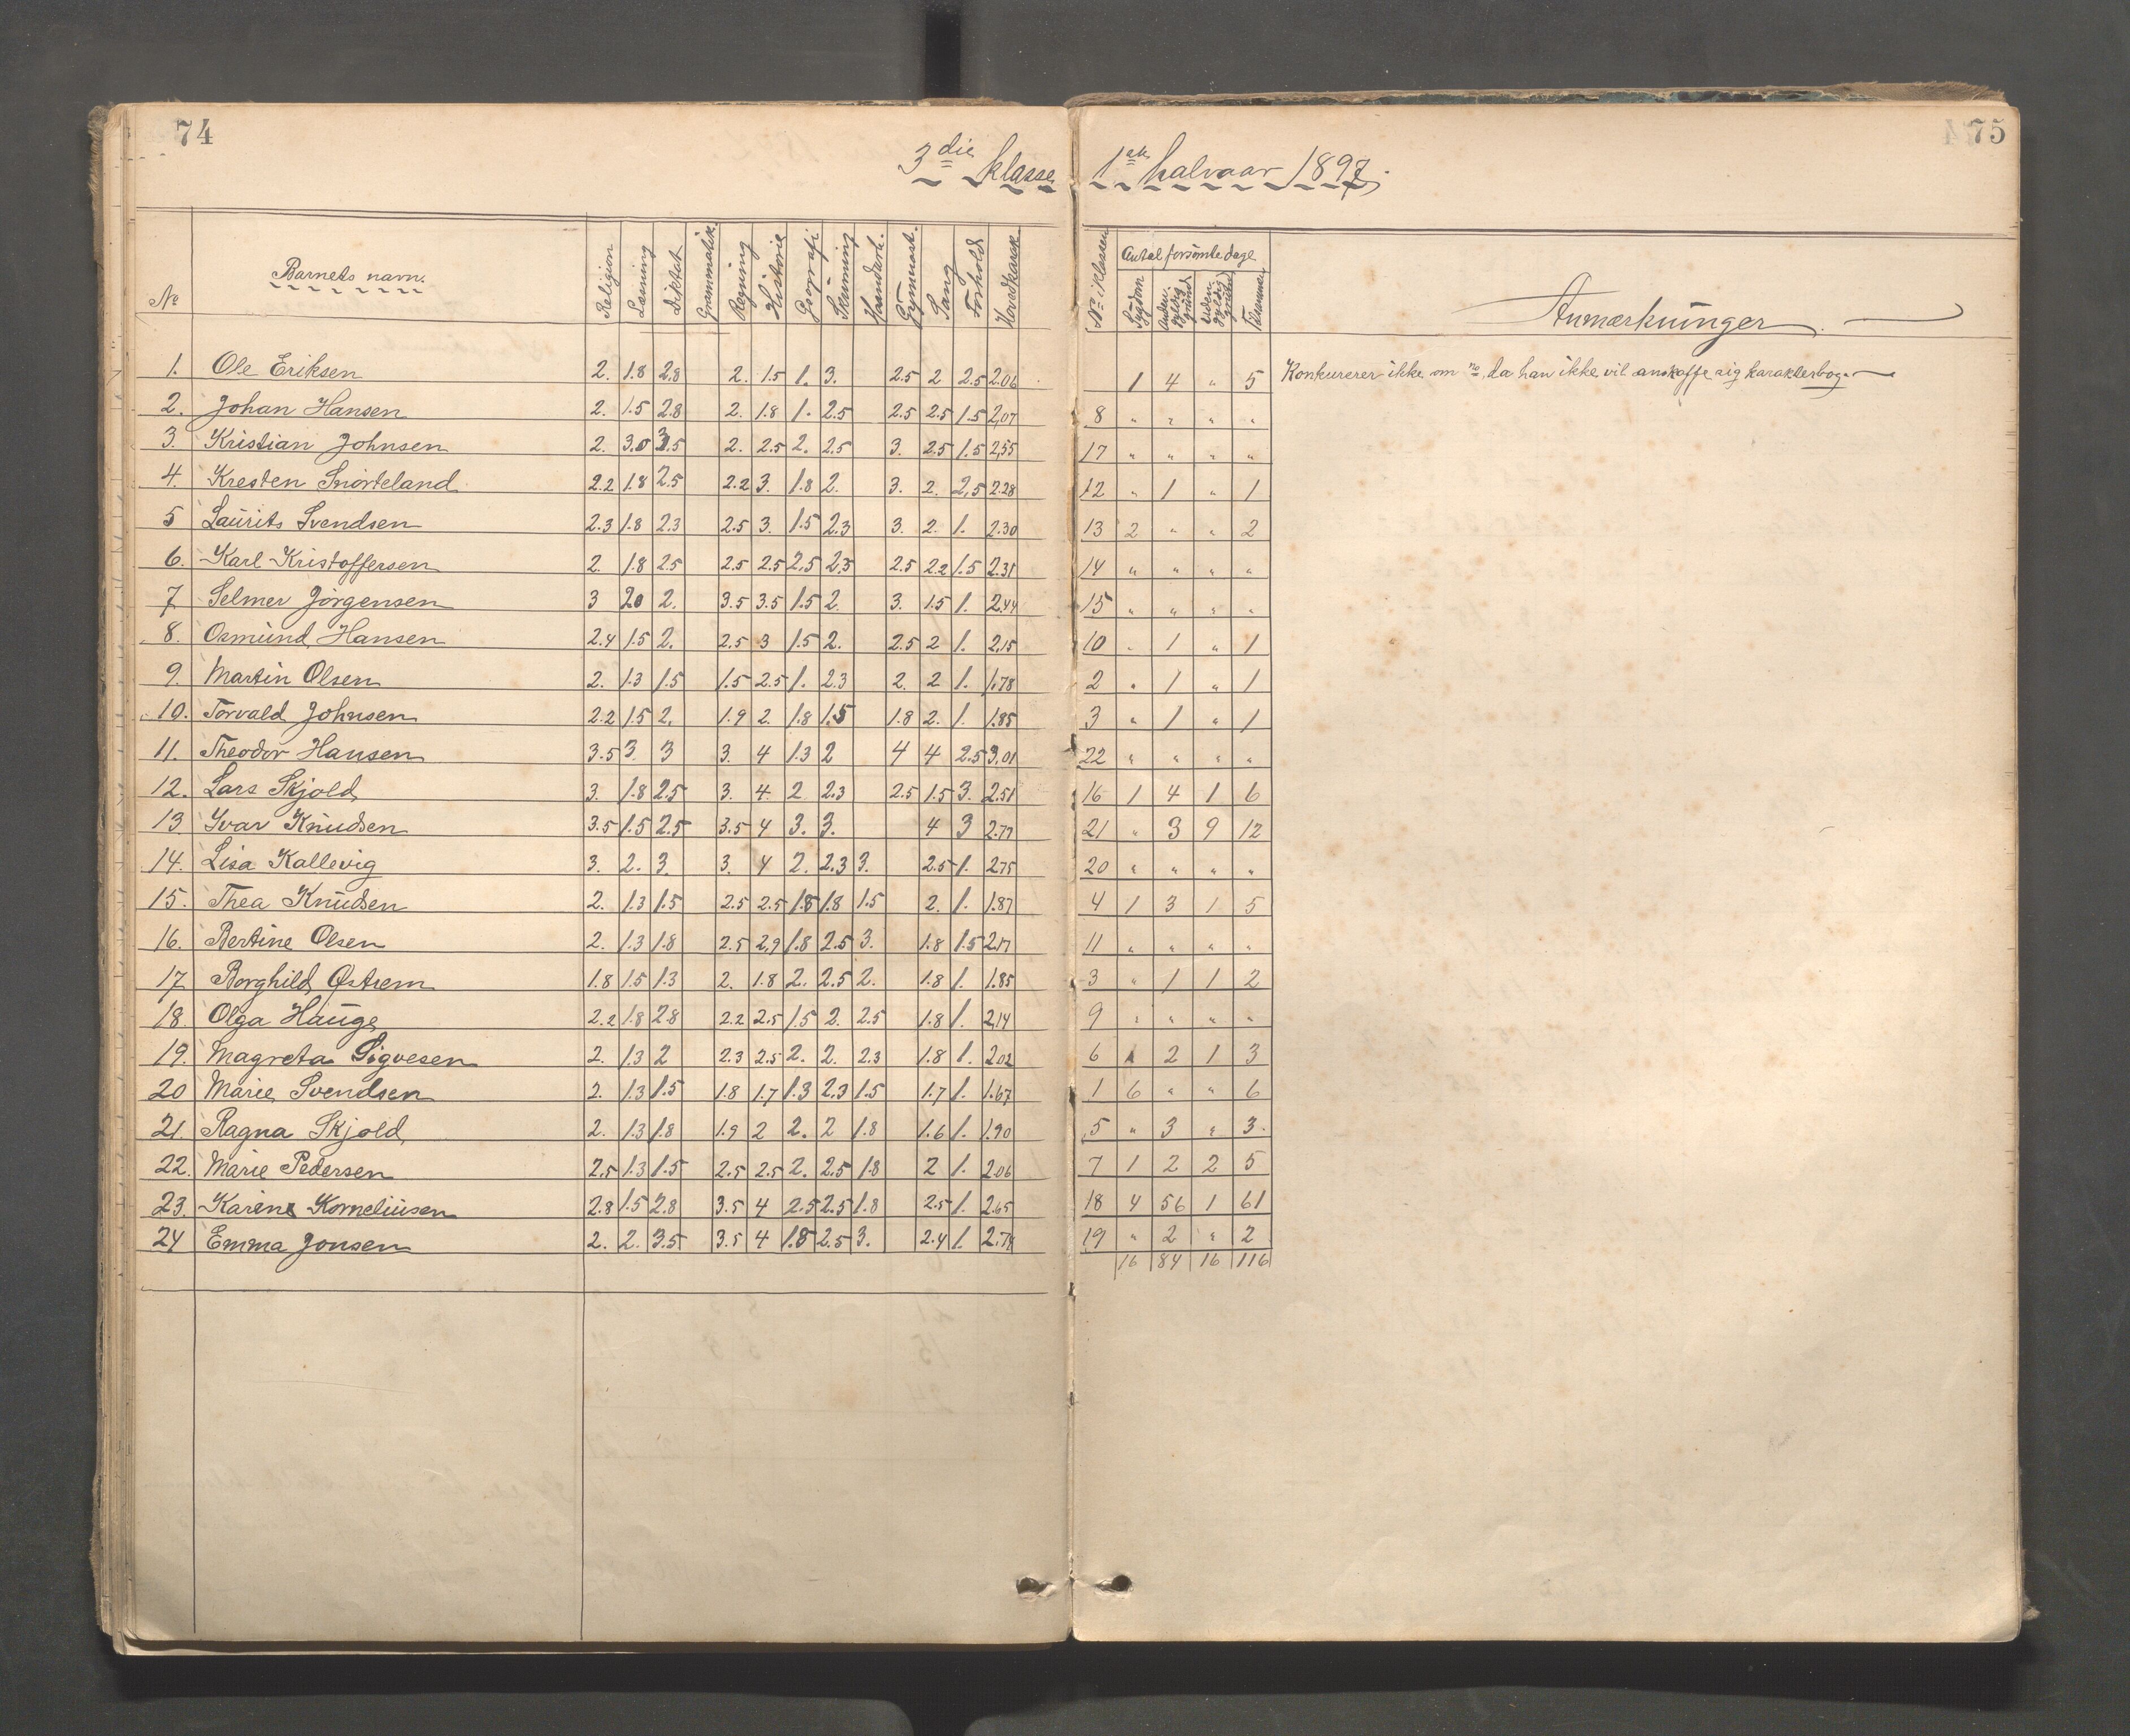 74
75
3die klasse 1ste halvaar 1897.
No Barnets navn. Religion Læsning Diktat Grammatik. Regning Historie Geografi Skrivning Haandarb. Gymnast. Sang Forhold Hovedkarak. No i klassen Antal forsømte dage Sygdom Anden gyldig grund Uden gyldig grund Tilsammen Anmærkninger.
1. Ole Eriksen 2. 1.8 2.8 2. 1.5 1. 3. 2.5 2 2.5 2.06 1 4 " 5 Konkurerer ikke om no, da han ikke vil anskaffe sig karakterbog.
2. Johan Hansen 2. 1.5 2.8 2. 1.8 1. 2.5 2.5 2.5 1.5 2,07 8 " " " "
3. Kristian Johnsen 2. 3.0 3.5 2. 2.5 2. 2.5 3. 2.5 1.5 2,55 17 " " " "
4. Kresten Snørteland 2.2 1.8 2.5 2.2 3. 1.8 2. 3. 2. 2,5 2.28 12 " 1 " 1
5 Laurits Svendsen 2.3 1.8 2.3 2.5 3. 1.5 2.3 3. 2. 1. 2.30 13 2 " " 2
6. Karl Kristoffersen 2. 1.8 2.5 2.5 2.5 2,5 2.3 2.5 2.2 1.5 2.31 14 " " " "
7. Selmer Jörgensen 3 2.0 2. 3.5 3.5 1.5 2. 3. 1.5 1. 2.44 15 " " " "
8. Osmund Hansen 2.4 1.5 2. 2.5 3 1.5 2. 2.5 2 1. 2,15 10 " 1 " 1
9. Martin Olsen 2. 1.3 1.5 1.5 2.5 1. 2.3 2. 2 1. 1.78 2 " 1 " 1
10. Torvald Johnsen 2.2 1.5 2. 1.9 2. 1.8 1.5 1.8 2. 1. 1.85 3 " 1 " 1
11. Theodor Hansen 3.5 3. 3 3. 4 1.3 2 4 4 2.5 3,01 22 " " " "
12. Lars Skjold 3. 1.8 2.5 3. 4. 2 2.3 2.5 1.5 3. 2.51 16 1 4 1 6
13 Ivar Knudsen 3.5 1.5 2.5 3.5 4 3. 3. 4 3 2.77 21 " 3 9 12
14. Lisa Kallevig 3. 2. 3. 3. 4 2. 2.3 3. 2.5 1. 2.75 20 " " " "
15. Thea Knudsen 2. 1.3 1.5 2.5 2.5 1.8 1.8 1.5 2. 1. 1.87 4 1 3 1 5
16. Bertine Olsen 2. 1.3 1.8 2.5 2,9 1.8 2.5 3. 1.8 1.5 2.17 11 " " " "
17 Borghild Østrem 1.8 1.5 1.3 2. 1.8 2. 2.5 2. 1.8 1. 1.85 3 " 1 1 2
18. Olga Hauge 2.2 1.8 2.8 2.2 2.5 1.5 2. 2.5 1.8 1. 2,14 9 " " " "
19. Magreta Sigvesen 2. 1.3 2 2.3 2.5 2. 2. 2.3 1.8 1. 2.02 6 " 2 1 3
20 Marie Svendsen 2. 1.3 1.5 1.8 1.7 1.3 2.3 1.5 1.7 1. 1.67 1 6 " " 6
21. Ragna Skjold 2. 1.3 1.8 1.9 2 2. 2 1.8 1.6 1. 1.90 5 " 3 " 3.
22. Marie Pedersen 2,5 1.3 1.5 2.5 2.5 2. 2.5 1.8 2 1. 2.06 7 1 2 2 5
23. Karine Korneliusen 2.8 1.5 2.8 3.5 4 2.5 2.5 1.8 2.5 1. 2.65 18 4 56 1 61
24 Emma Jonsen 2. 2. 3.5 3.5 4 1.8 2.5 3. 2.4 1. 2.74 19 " 2 " 2
16 84 16 116